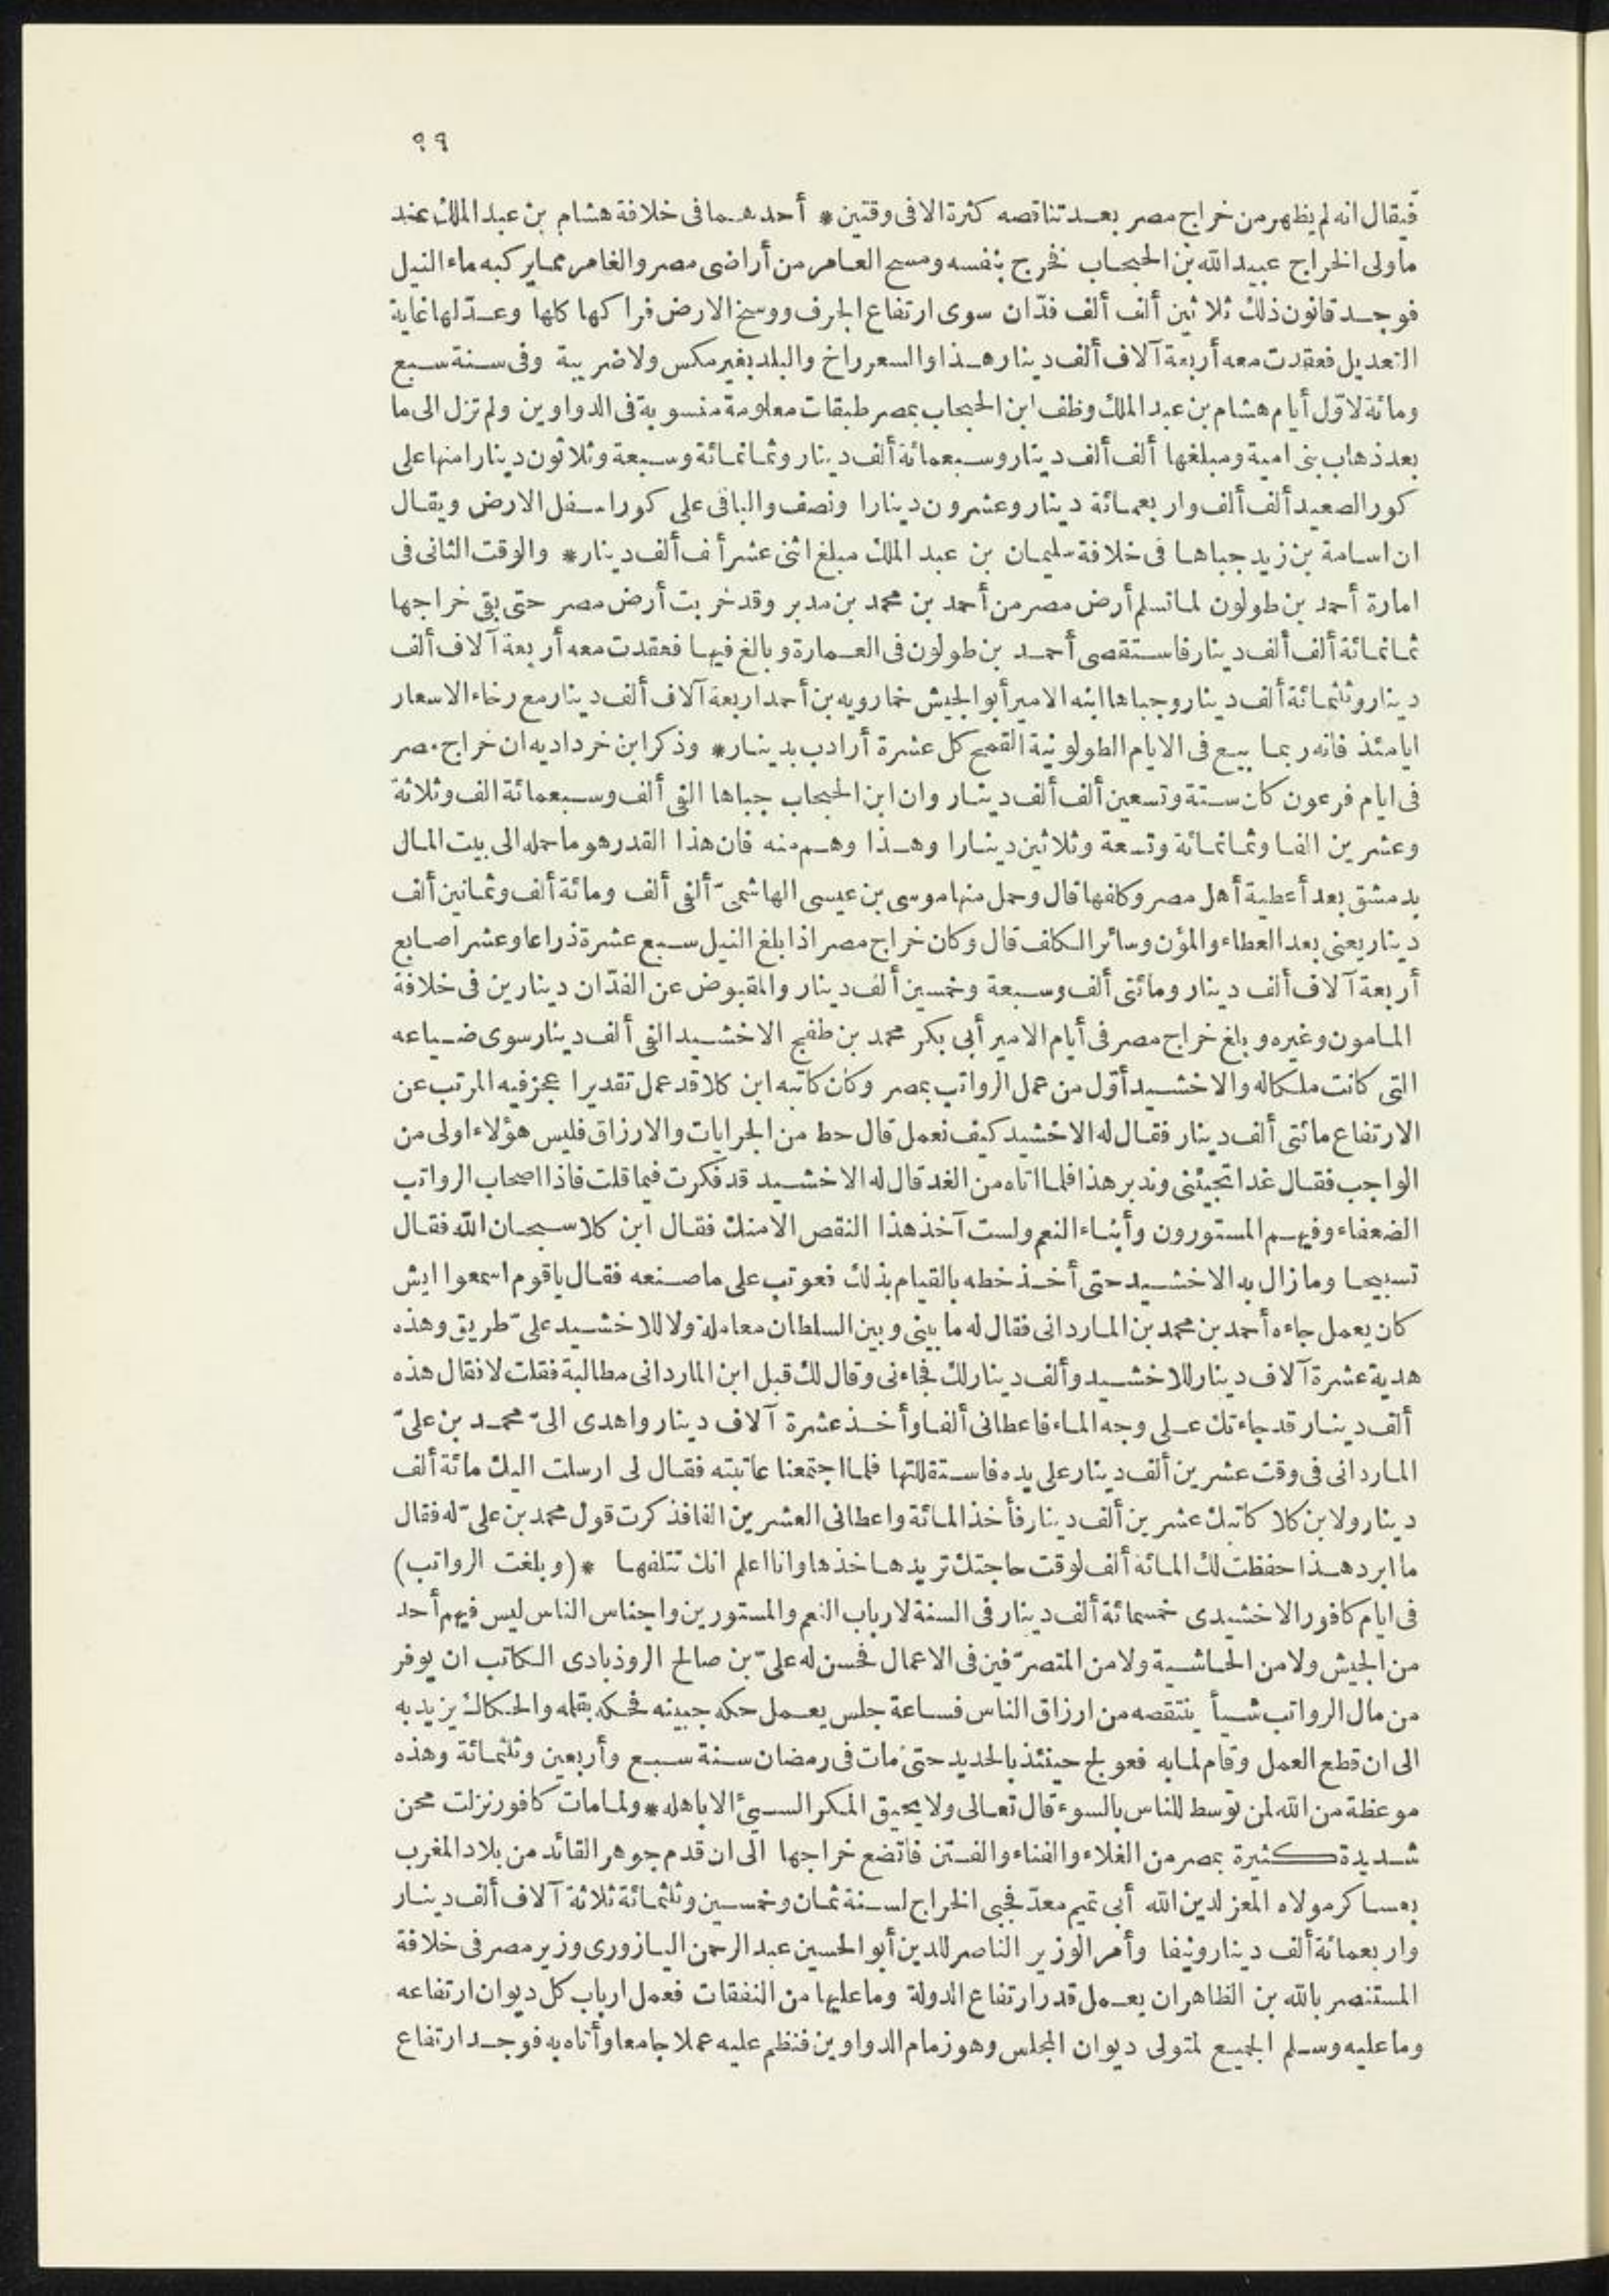 ٩٩
فيقال انه لم يظهر من خراج مصر بعد تناقصه كثرة الا فى وقتين * أحدهما فى خلافة هشام بن عبد الملك عند
ما ولى الخراج عبيد الله بن الحبحاب فخرج بنفسه ومسح العامر من أراضى مصر والغامر مما يركبه ماء النيل
فوجد قانون ذلك ثلاثين ألف ألف فدّان سوى ارتفاع الجرف ووسخ الارض فراكها كلها وعدّلها غاية
التعديل فعقدت معه أربعة آلاف ألف دينار هذا والسعر راخ والبلد بغير مكس ولا ضريبة وفى سنة سبع
ومائة لاوّل أيام هشام بن عبد الملك وظف ابن الحبحاب بمصر طبقات معلومة منسوبة فى الدواوين ولم تزل الى ما
بعد ذهاب بنى امية ومبلغها ألف ألف دينار وسبعمائة ألف دينار وثمانمائة وسبعة وثلاثون دينارا منها على
كور الصعيد ألف ألف واربعمائة دينار وعشرون دينارا ونصف والباقى على كور اسفل الارض ويقال
ان اسامة بن زيد جباها فى خلافة سليمان بن عبد الملك مبلغ اثنى عشر أف ألف دينار * والوقت الثانى فى
امارة أحمد بن طولون لما تسلم أرض مصر من أحمد بن محمد بن مدبر وقد خربت أرض مصر حتى بقى خراجها
ثمانمائة ألف ألف دينار فاستقصى أحمد بن طولون فى العمارة وبالغ فيها فعقدت معه أربعة آلاف ألف
دينار وثلثمائة ألف دينار وجباها ابنه الامير أبو الجيش خمارويه بن أحمد اربعة آلاف ألف دينار مع رخاء الاسعار
ايامئذ فانه ربما بيع فى الايام الطولونية القمح كل عشرة أرادب بدينار * وذكر ابن خرداديه ان خراج مصر
فى ايام فرعون كان ستة وتسعين ألف ألف دينار وان ابن الحبحاب جباها الفى ألف وسبعمائة الف وثلاثة
وعشرين الفا وثمانمائة وتسعة وثلاثين دينارا وهذا وهم منه فان هذا القدر هو ما حمله الى بيت المال
بدمشق بعد أعطية أهل مصر وكلفها قال وحمل منها موسى بن عيسى الهاشمىّ ألفى ألف ومائة ألف وثمانين ألف
دينار يعنى بعد العطاء والمؤن وسائر الكلف قال وكان خراج مصر اذا بلغ النيل سبع عشرة ذراعا وعشر اصابع
أربعة آلاف ألف دينار ومائتى ألف وسبعة وخمسين ألف دينار والمقبوض عن الفدّان دينارين فى خلافة
المامون وغيره وبلغ خراج مصر فى أيام الامير أبى بكر محمد بن طفج الاخشيد الفى ألف دينار سوى ضياعه
التى كانت ملكا له والاخشيد أوّل من عمل الرواتب بمصر وكان كاتبه ابن كلا قد عمل تقديرا عجز فيه المرتب عن
الارتفاع مائتى ألف دينار فقال له الاخشيد كيف نعمل قال حط من الجرايات والارزاق فليس هؤلاء اولى من
الواجب فقال غدا تجيئنى وندبر هذا فلما اتاه من الغد قال له الاخشيد قد فكرت فيما قلت فاذا اصحاب الرواتب
الضعفاء وفيهم المستورون وأبناء النعم ولست آخذ هذا النقص الا منك فقال ابن كلا سبحان الله فقال
تسبيحا وما زال به الاخشيد حتى أخذ خطه بالقيام بذلك فعوتب على ما صنعه فقال ياقوم اسمعوا ايش
كان يعمل جاءه أحمد بن محمد بن الماردانى فقال له ما بينى وبين السلطان معاملة ولا للاخشيد علىّ طريق وهذه
هدية عشرة آلاف دينار للاخشيد وألف دينار لك فجاءنى وقال لك قبل ابن الماردانى مطالبة فقلت لا فقال هذه
ألف دينار قد جاءتك على وجه الماء فاعطانى ألفا وأخذ عشرة آلاف دينار واهدى الىّ محمد بن علىّ
الماردانى فى وقت عشرين ألف دينار على يده فاستقللتها فلما اجتمعنا عاتبته فقال لى ارسلت اليك مائة ألف
دينار ولابن كلا كاتبك عشرين ألف دينار فأخذ المائة واعطانى العشرين الفا فذكرت قول محمد بن علىّ له فقال
ما ابرد هذا حفظت لك المائة ألف لوقت حاجتك تريدها خذها وانا اعلم انك تتلفها * (وبلغت الرواتب)
فى ايام كافور الاخشيدى خمسمائة ألف دينار فى السنة لارباب النعم والمستورين واجناس الناس ليس فيهم أحد
من الجيش ولا من الحاشية ولا من المتصرّفين فى الاعمال فحسن له علىّ بن صالح الروذبادى الكاتب ان يوفر
من مال الرواتب شيأ ينتقصه من ارزاق الناس فساعة جلس يعمل حكه جبينه فحكه بقلمه والحكاك يزيد به
الى ان قطع العمل وقام لمابه فعولج حينئذ بالحديد حتى مات فى رمضان سنة سبع وأربعين وثلثمائة وهذه
موعظة من الله لمن توسط للناس بالسوء قال تعالى ولا يحيق المكر السيئ الا باهله * ولما مات كافور نزلت محن
شديدة كثيرة بمصر من الغلاء والفناء والفتن فاتضع خراجها الى ان قدم جوهر القائد من بلاد المغرب
بعساكر مولاه المعز لدين الله أبى تميم معدّ فجبى الخراج لسنة ثمان وخمسين وثلثمائة ثلاثة آلاف ألف دينار
واربعمائة ألف دينار ونيفا وأمر الوزير الناصر للدين أبو الحسين عبد الرحمن اليازورى وزير مصر فى خلافة
المستنصر بالله بن الظاهر ان يعمل قدر ارتفاع الدولة وما عليها من النفقات فعمل ارباب كل ديوان ارتفاعه
وما عليه وسلم الجميع لمتولى ديوان المجلس وهو زمام الدواوين فنظم عليه عملا جامعا وأتاه به فوجد ارتفاع